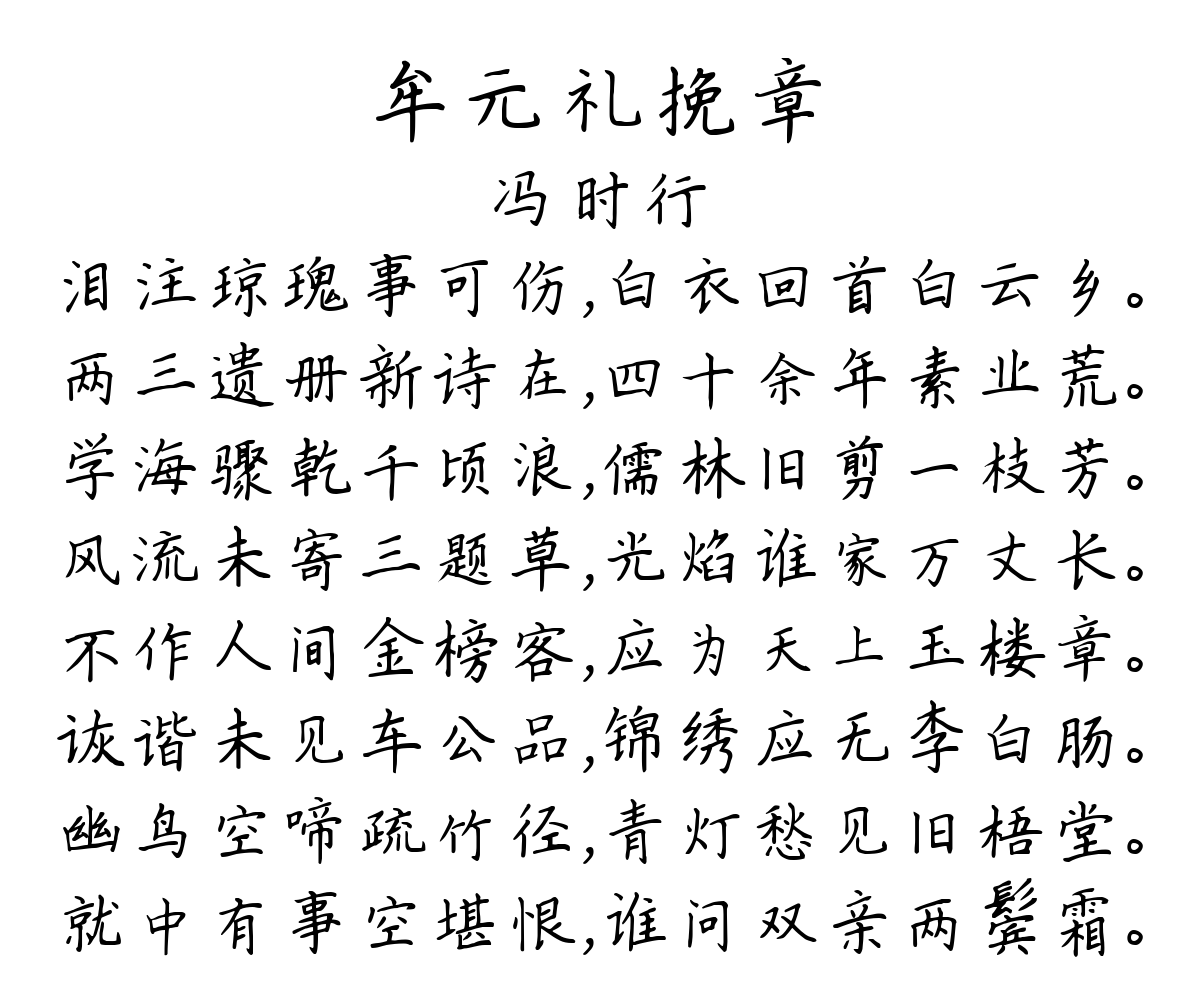 牟元礼挽章
冯时行
泪注琼瑰事可伤,白衣回首白云乡。
两三遗册新诗在,四十余年素业荒。
学海骤乾千顷浪,儒林旧剪一枝芳。
风流未寄三题草,光焰谁家万丈长。
不作人间金榜客,应为天上玉楼章。
诙谐未见车公品,锦绣应无李白肠。
幽鸟空啼疏竹径,青灯愁见旧梧堂。
就中有事空堪恨,谁问双亲两鬓霜。